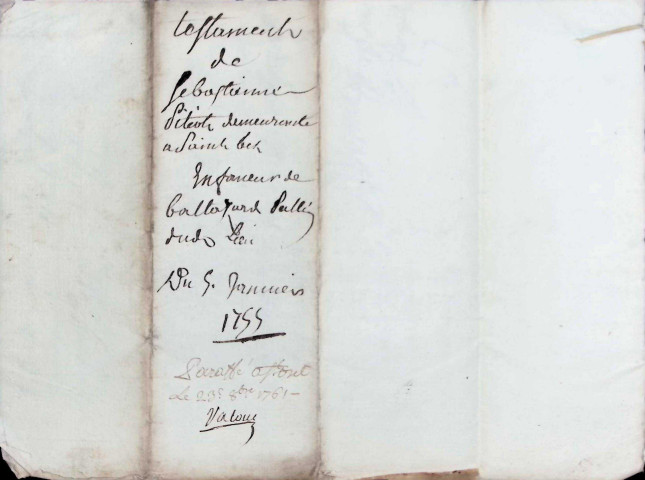 testament
de
Sebastienne
Pitiot demeurante
a Saint bel
En faveur de
baltazard
dud. Lieu
Du 5. Janvier
1755
Le 23e 8bre 1761